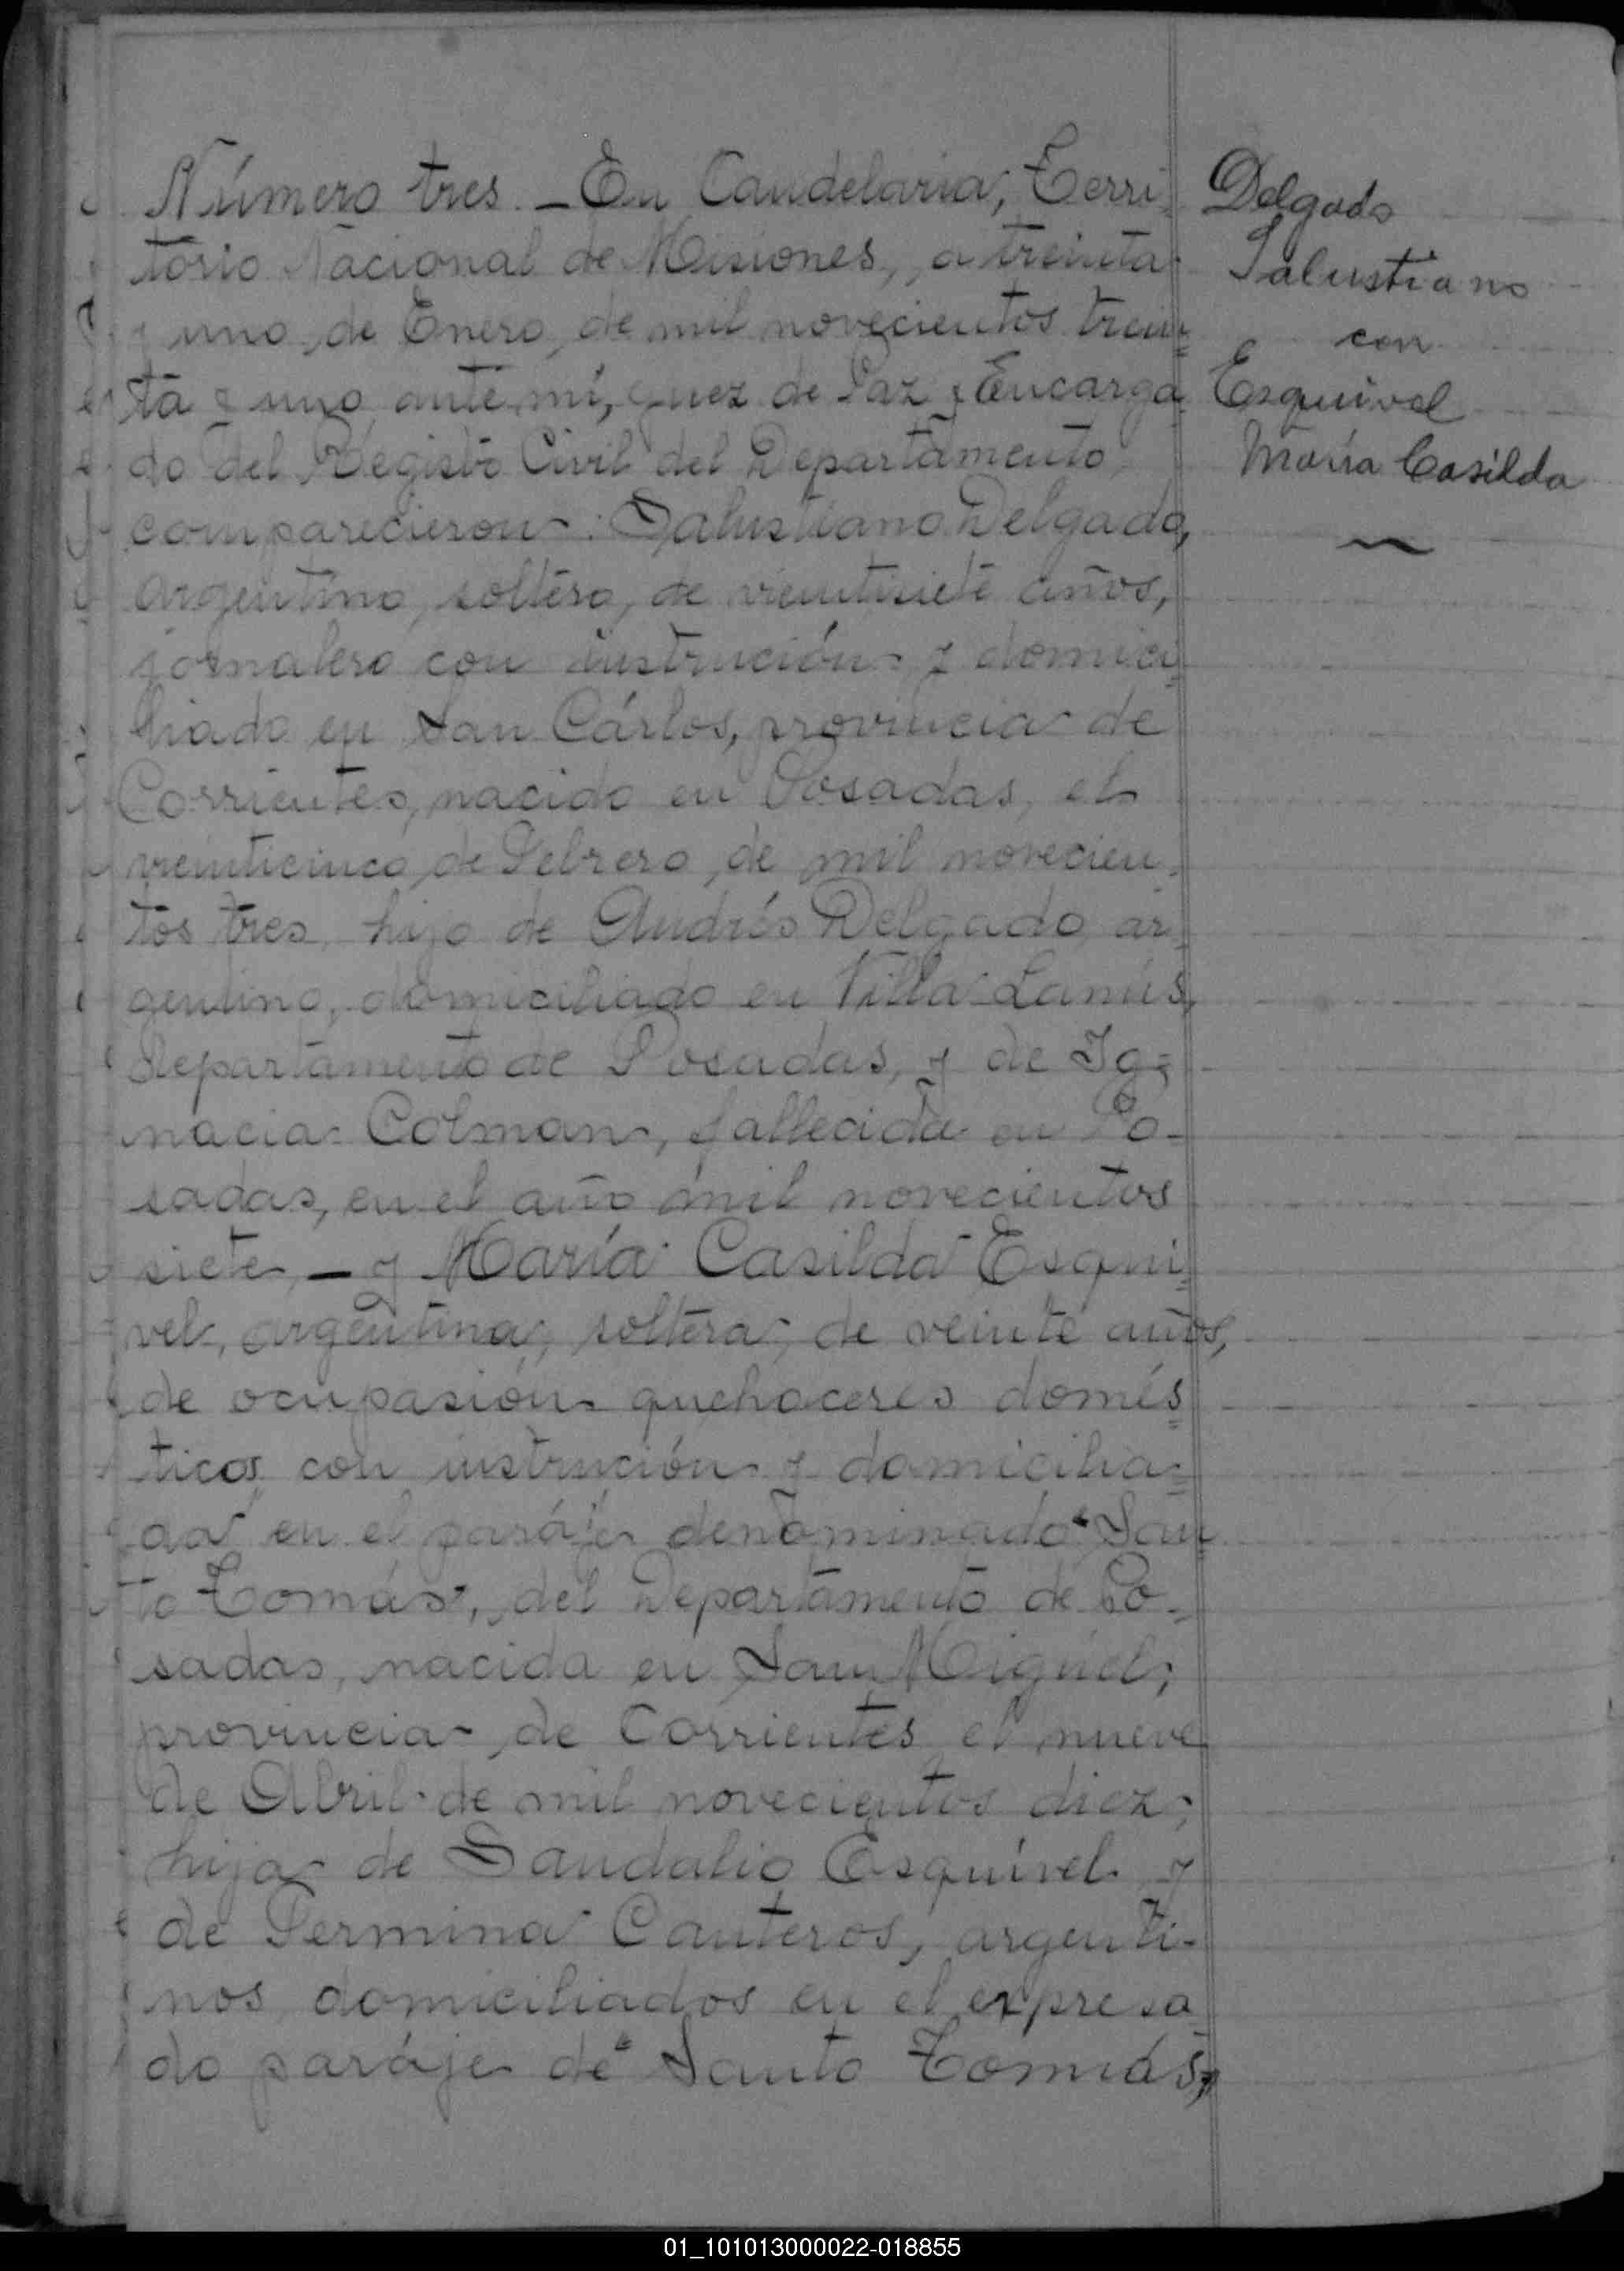 Número tres. — En Candelaria, Terri
torio Nacional de Misiones, a treinta
y uno, de Enero, de mil novecientos trein
ta y uno, ante mí, Juez de Paz y Encarga
do del Registro Civil del Departamento
comparecieron: Salustiano Delgado,
argentino, soltero, de veintisiete años,
jornalero con instrución y domici
liado en San Cárlos, provincia de
Corrientes, nacido en Posadas, el
veinticinco, de Febrero, de mil novecien
tos tres, hijo de Andrés Delgado, ar
gentino, domiciliado en Villa Lanús,
departamento de Posadas, y de Ig-
nacia Colman, fallecida en Po-
sadas, en el año mil novecientos
siete, — y María Casilda Esqui
vel, argentina, soltera, de veinte años,
de ocupasión quehaceres domés
ticos, con instrución y domicilia-
da en el paráje denominado "San
to Tomás", del Departamento de Po-
sadas, nacida en San Miguel,
provincia de Corrientes el nueve
de Abril de mil novecientos diez,
hija de Sandalio Esquível y
de Fermina Canteros, argenti-
nos domiciliados en el expresa
do paráje de "Santo Tomás,"
Delgado
Salustiano
con
Esquivel
María Casilda
01_101013000022-018855